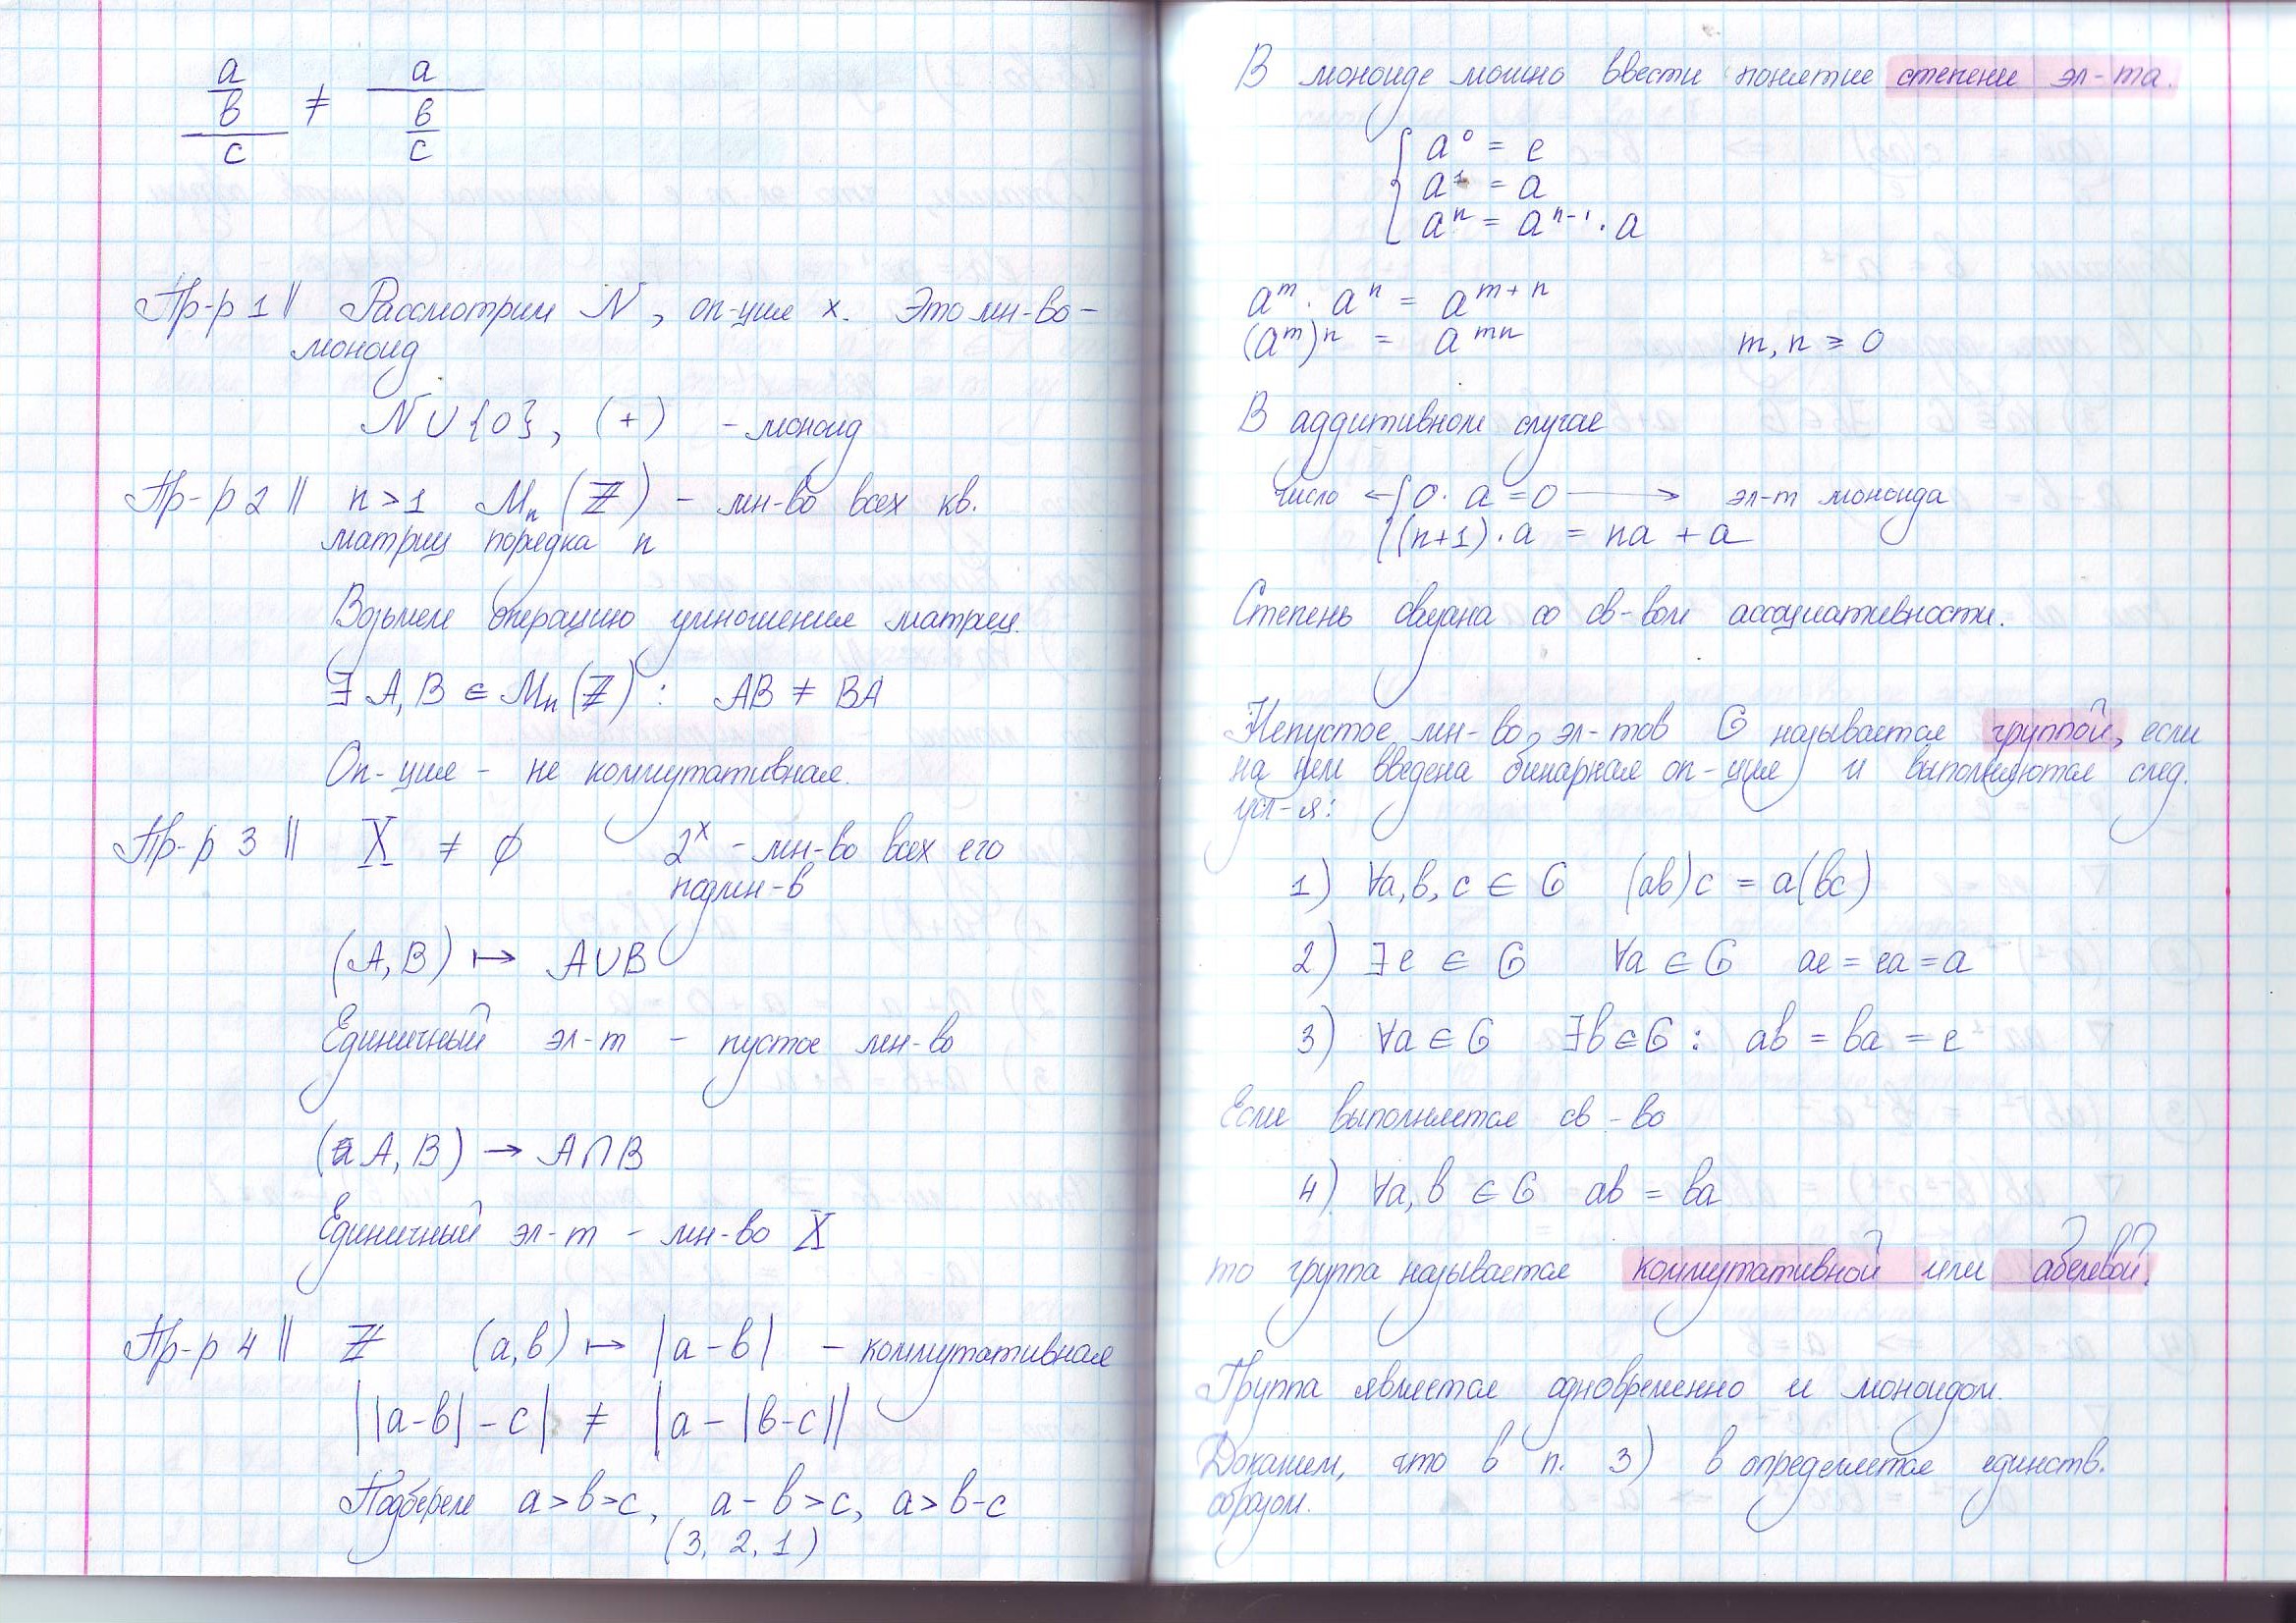 a/b / c ≠ a / b/c
Пр-р 1 || Рассмотрим N, оп-ция ×. Это мн-во -
моноид
N ∪ {0}, (+) - моноид
Пр-р 2 || n > 1 Mₙ(ℤ) - мн-во всех кв.
матриц порядка n
Возьмем операцию умножения матриц.
∃ A, B ∈ Mₙ(ℤ) : AB ≠ BA
Оп-ция - не коммутативная.
Пр-р 3 || X ≠ ∅ 2ˣ - мн-во всех его
подмн-в
(A, B) ↦ A∪B
Единичный эл-т - пустое мн-во
(A, B) → A∩B
Единичный эл-т - мн-во X
Пр-р 4 || ℤ (a, b) ↦ |a - b| - коммутативная
||a-b| - c| ≠ |a - |b-c||
Подберем a > b > c, a - b > c, a > b-c
(3, 2, 1)
В моноиде можно ввести понятие степени эл-та.
a⁰ = e
a¹ = a
aⁿ = aⁿ⁻¹ · a
aᵐ · aⁿ = aᵐ⁺ⁿ
(aᵐ)ⁿ = aᵐⁿ m, n ≥ 0
В аддитивном случае
число ← { 0 · a = 0 → эл-т моноида
(n+1) · a = na + a
Степень связана со св-вом ассоциативности.
Непустое мн-во эл-тов G называется группой, если
на нем введена бинарная оп-ция и выполняются след.
усл-я:
1) ∀a, b, c ∈ G (ab)c = a(bc)
2) ∃e ∈ G ∀a ∈ G ae = ea = a
3) ∀a ∈ G ∃b ∈ G : ab = ba = e
Если выполняется св-во
4) ∀a, b ∈ G ab = ba
то группа называется коммутативной или абелевой.
Группа является одновременно и моноидом.
Докажем, что в п. 3) b определяется единств.
образом.